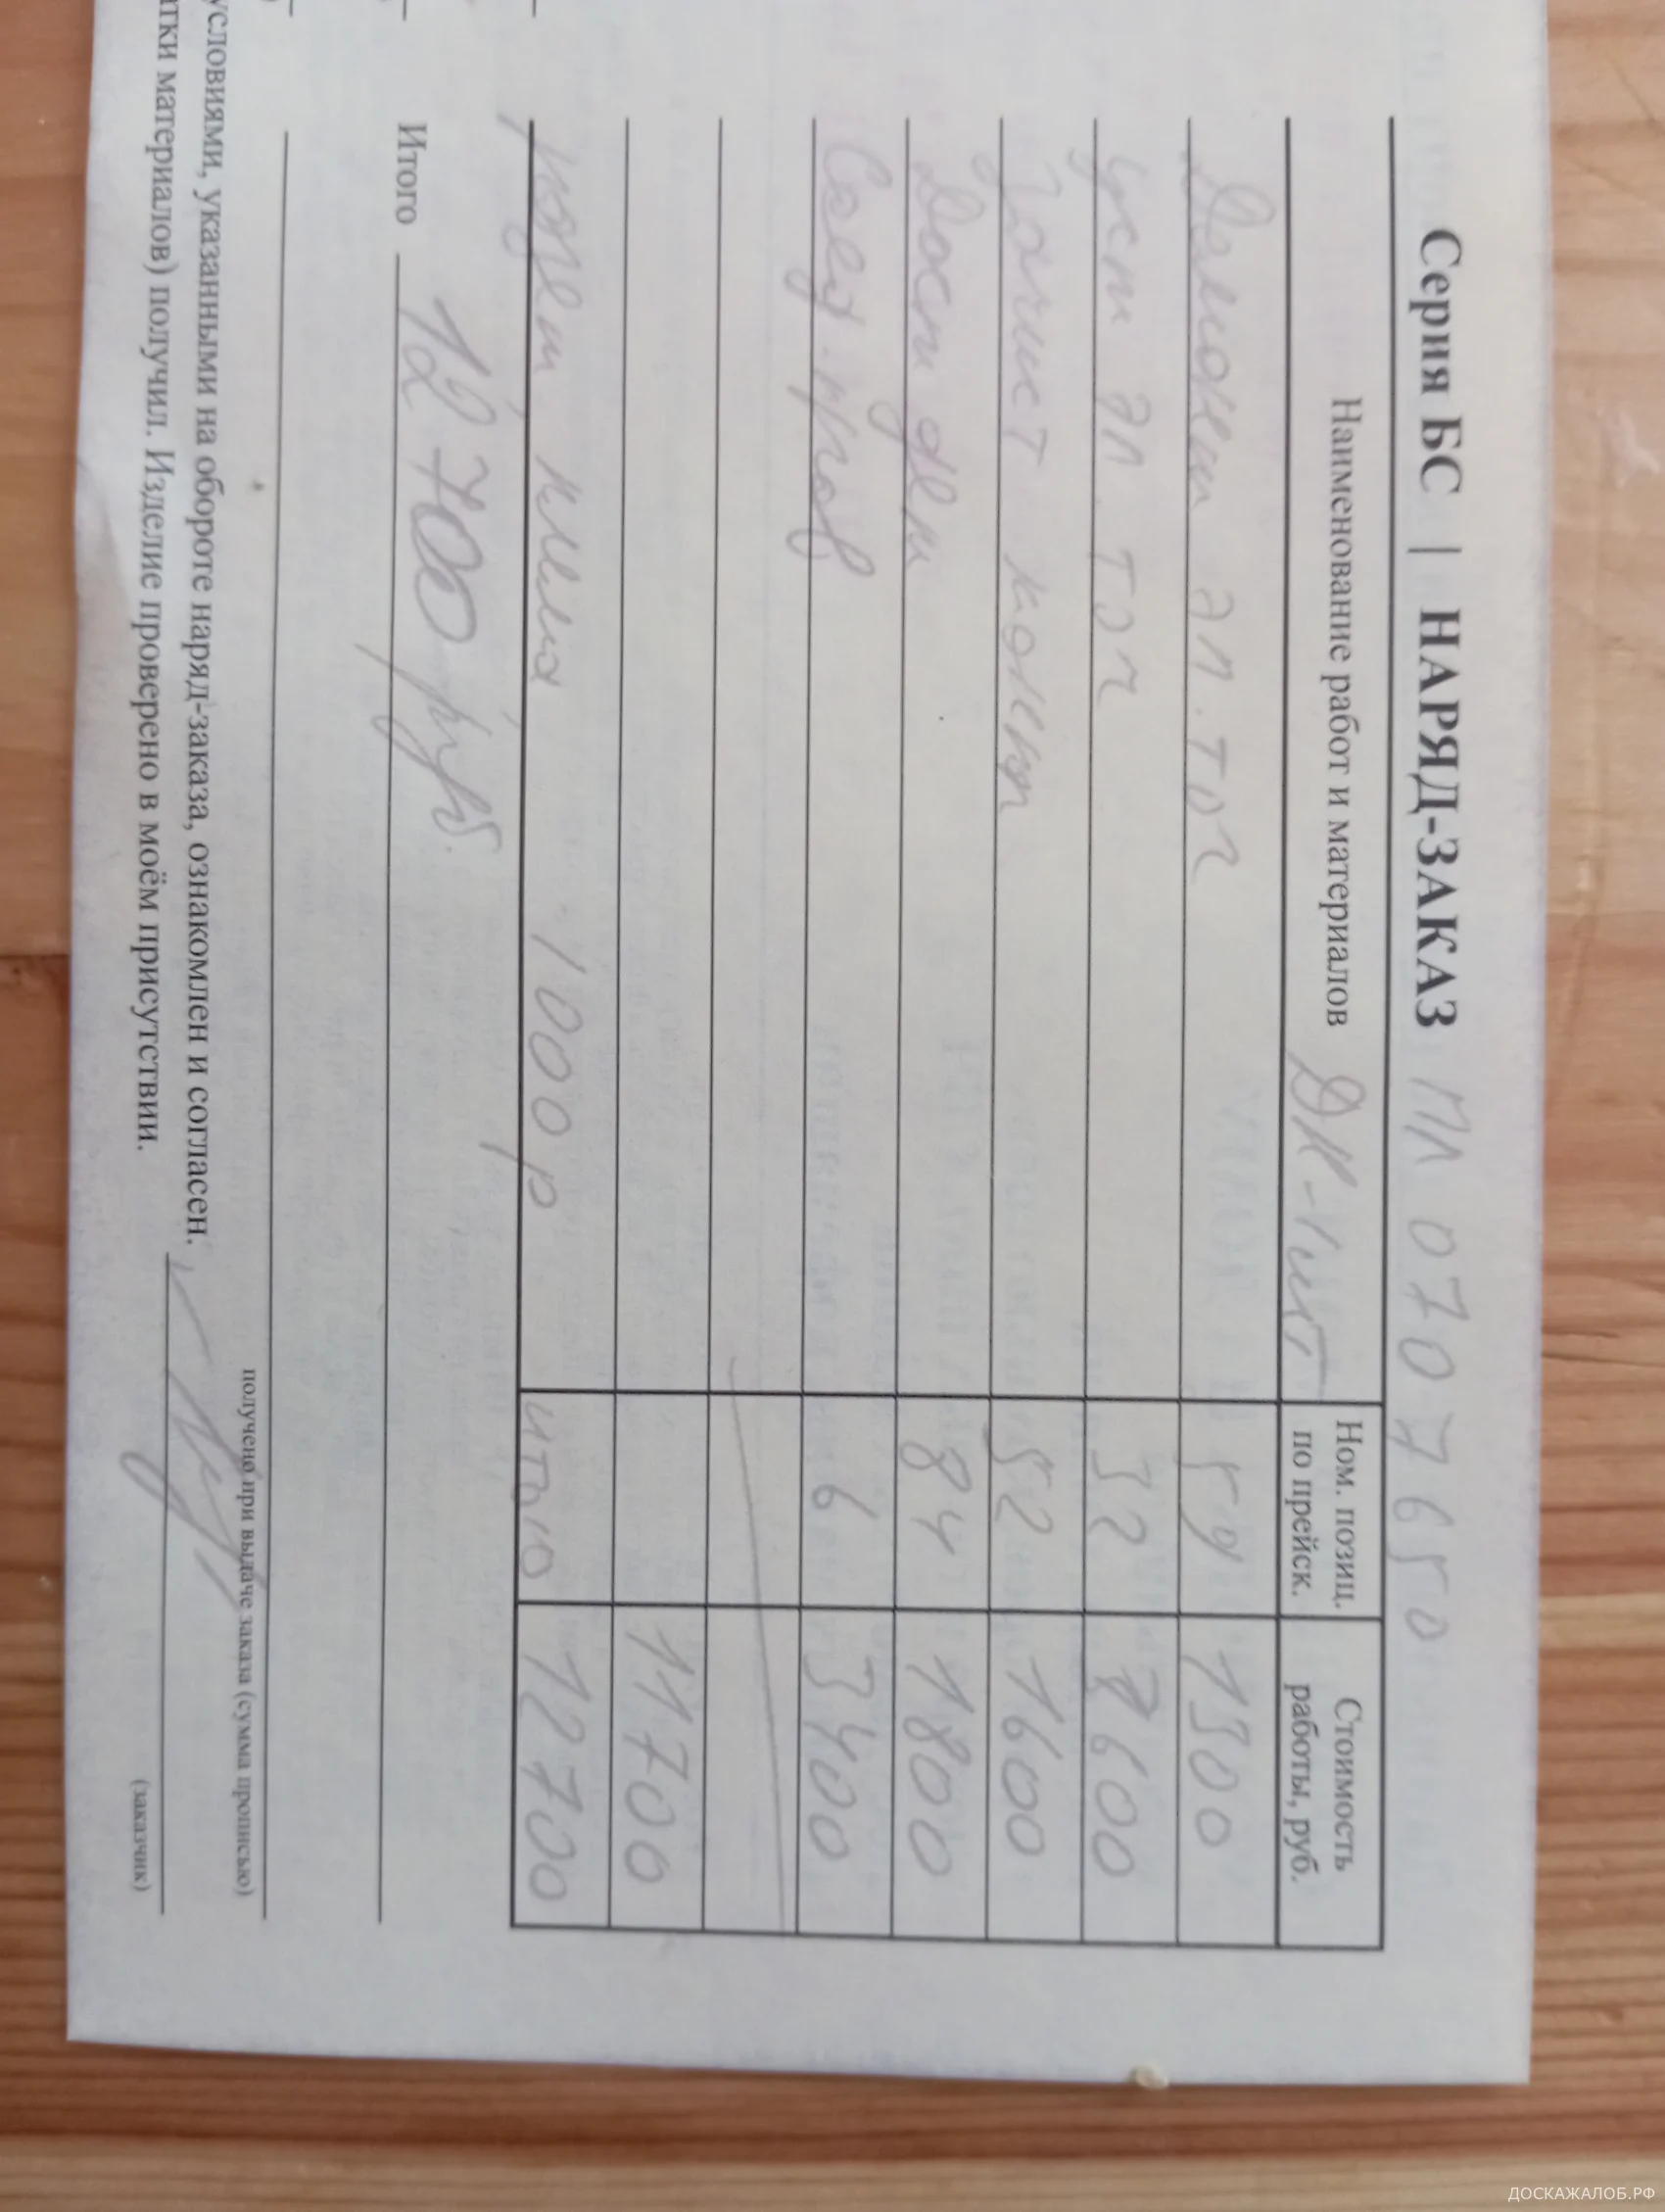 Серия БС | НАРЯД-ЗАКАЗ МЛ 0707650
Наименование работ и материалов
Ном. позиц. по прейск.
Стоимость работы, руб.
Демонт эл. точ 59 1300
Уст эл точ 32 3600
Зачист конт 52 1600
Дост дет 84 1800
6 3400
11700
1000 р итого 12700
Итого 12700 руб.
получено при выдаче заказа (сумма прописью)
условиями, указанными на обороте наряд-заказа, ознакомлен и согласен.
атки материалов) получил. Изделие проверено в моём присутствии.
(заказчик)
ДОСКАЖАЛОБ.РФ